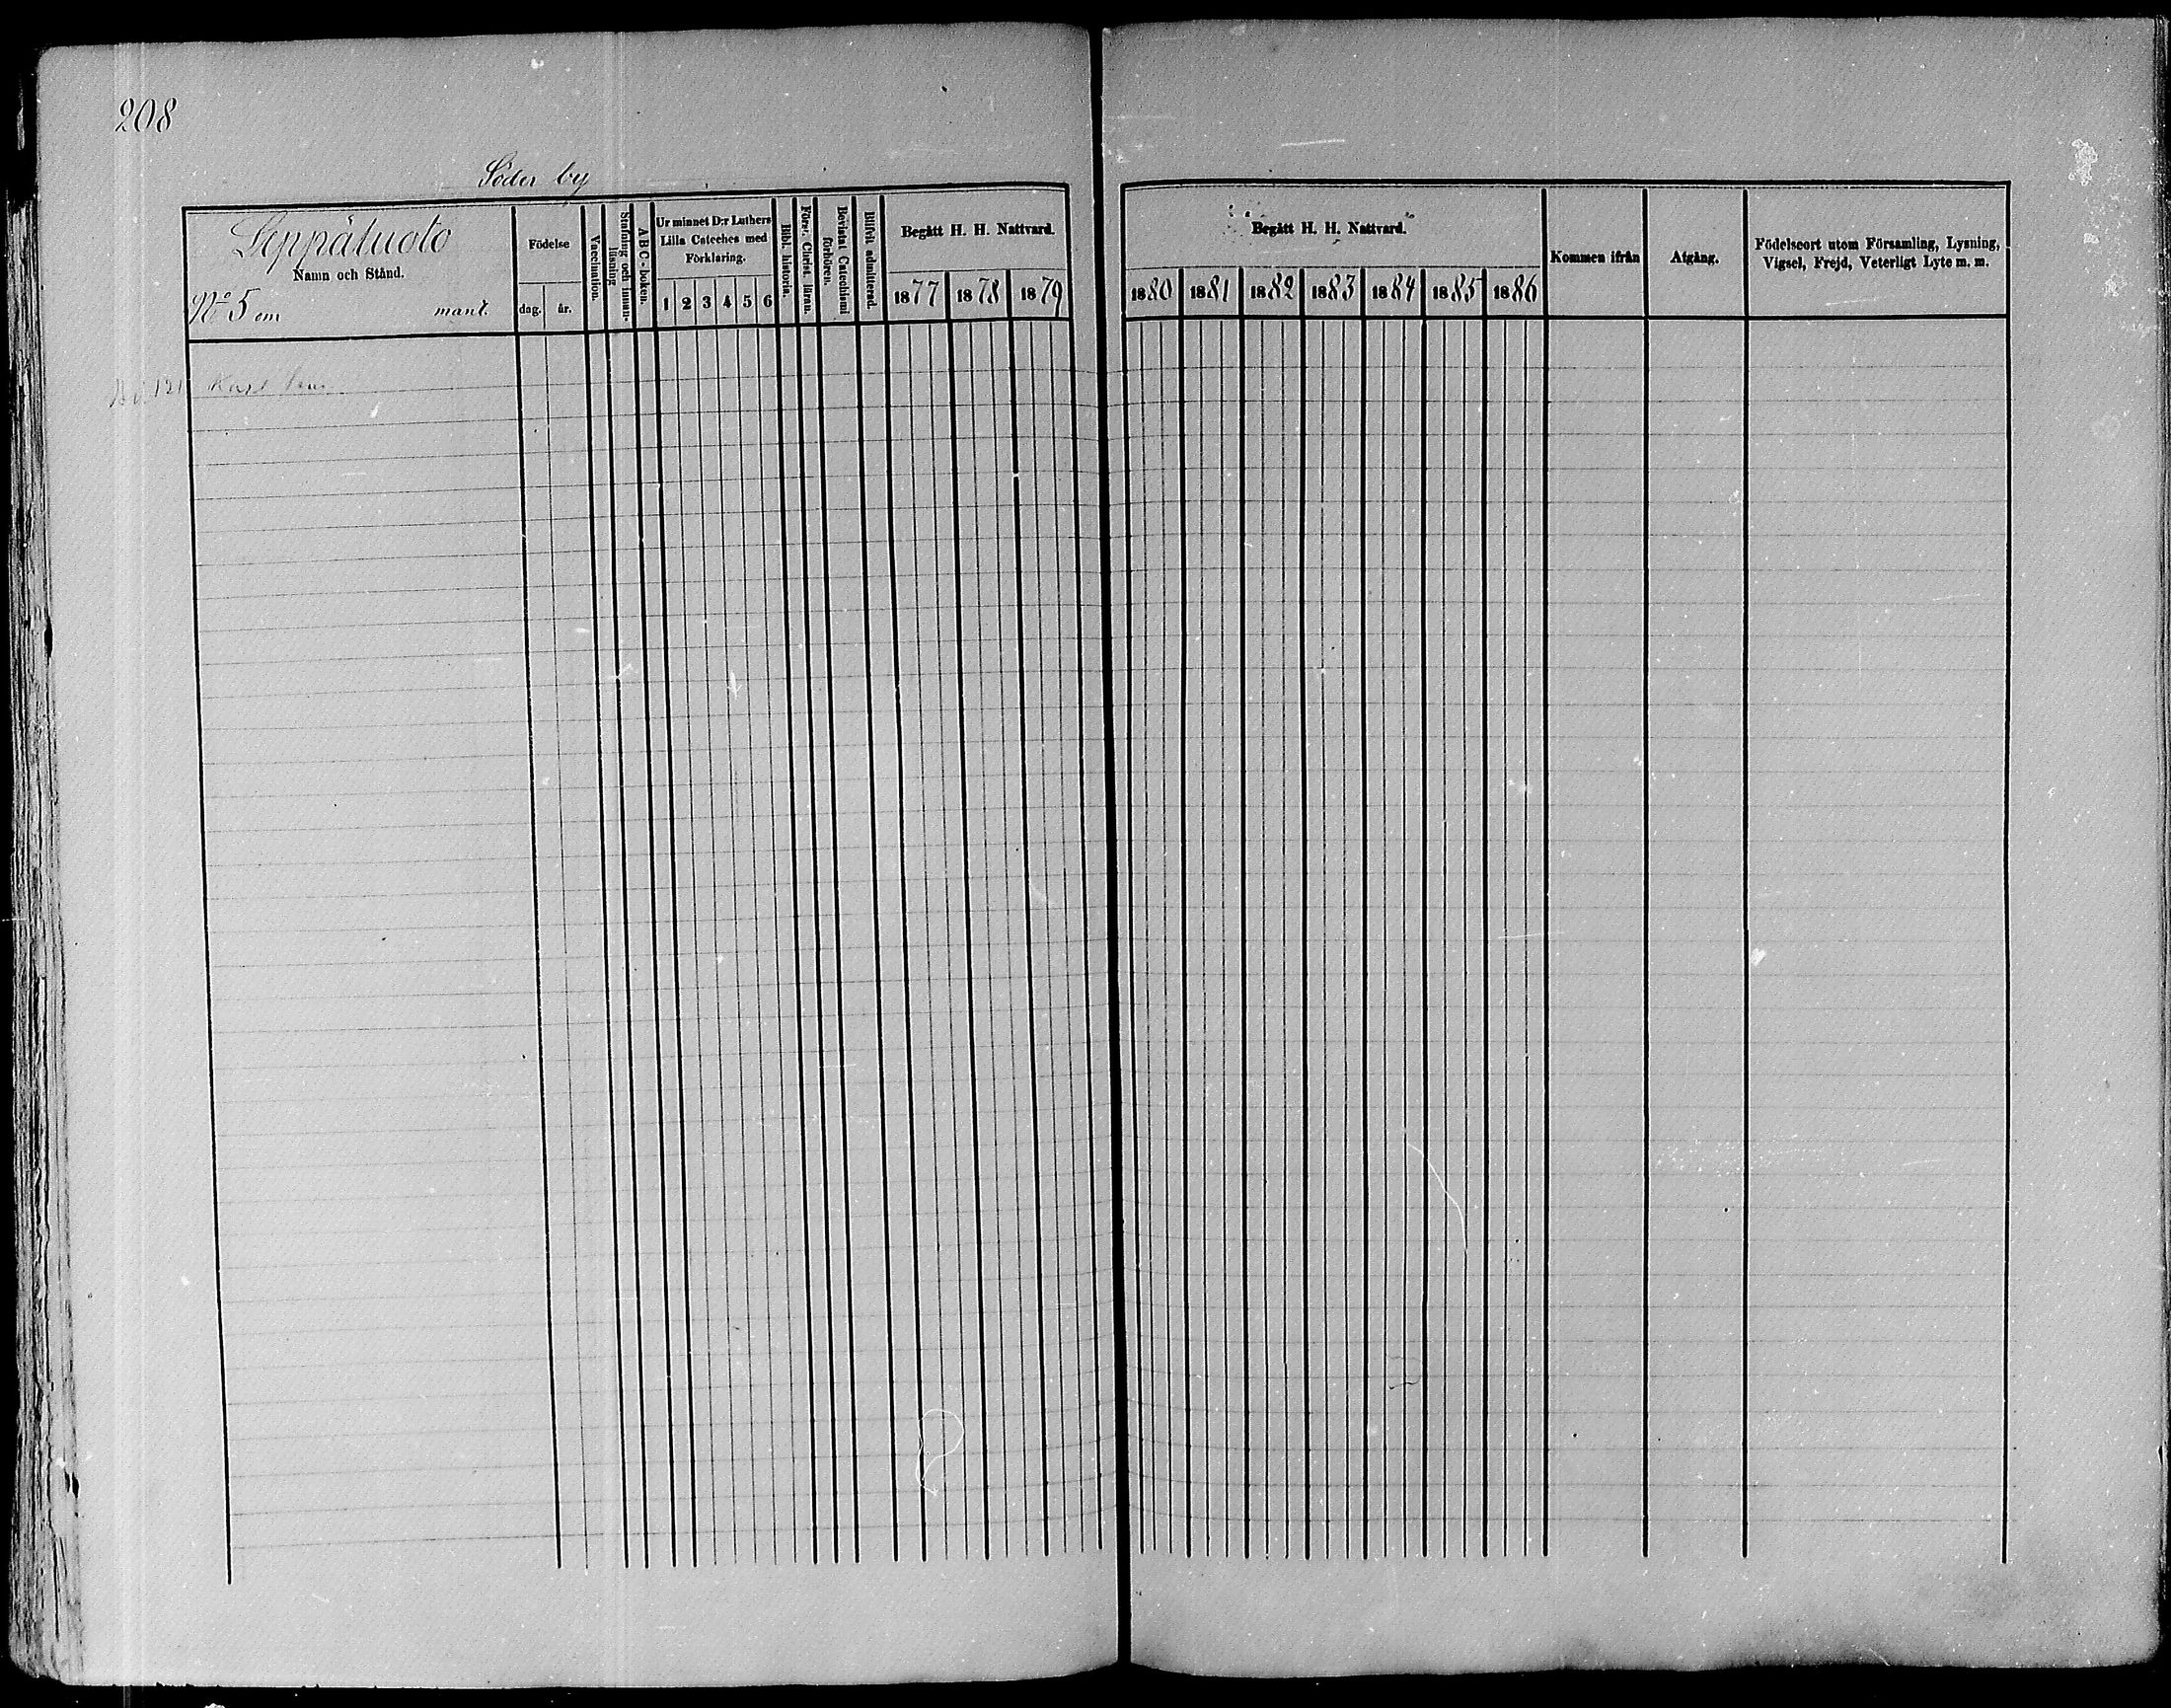 208
Söder by
Leppäluoto
Namn och Stånd.
No 5 om mant.
Födelse
dag. år.
Vaccination.
Stafning och innan-
läsning
A B C-boken.
Ur minnet D:r Luthers
Lilla Cateches med
Förklaring.
1 2 3 4 5 6
Bibl. historia.
Förstr. Christ. läran.
Bevistat Catechismi
förhören.
Blifvit admitterad.
Begått H. H. Nattvard.
1877 1878 1879
Begått H. H. Nattvard.
1880 1881 1882 1883 1884 1885 1886
Kommen ifrån
Afgång.
Födelseort utom Församling, Lysning,
Vigsel, Frejd, Veterligt Lyte m. m.
121 Karl